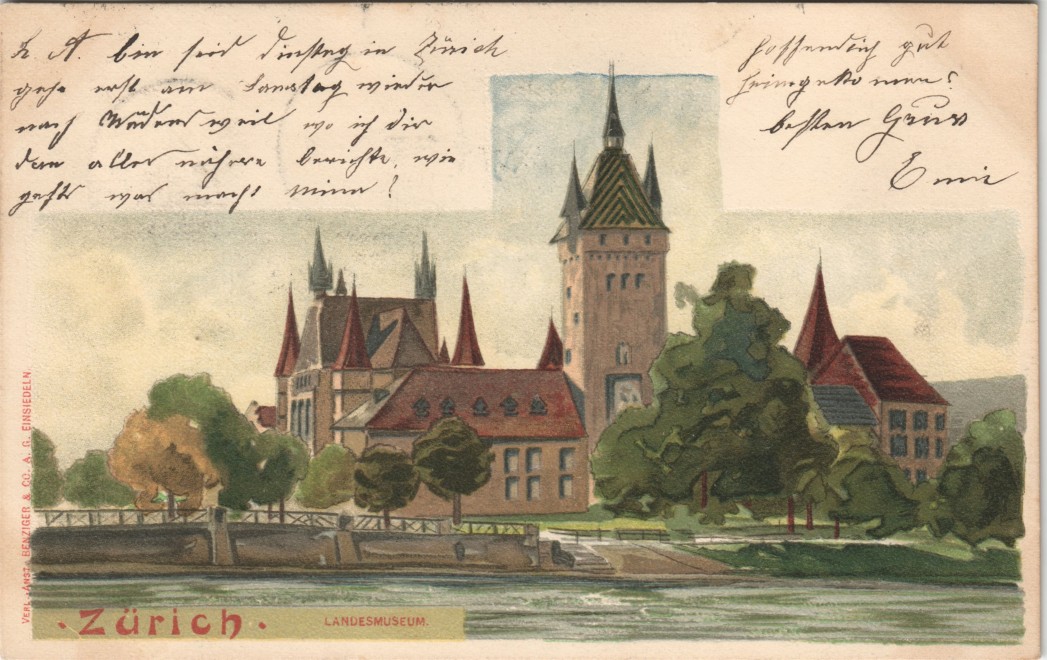 L. A. bin seid dinstag in Zürich
gehe erst am Samstag wieder
nach Wädensweil wo ich dir
dan alles nähere berichte, wie
gehts was macht Minn?
hoffendlich gut
heimgekommen?
besten Gruss
Emil
VERL.-ANST. BENZIGER & CO. A. G. EINSIEDELN
·Zürich·
LANDESMUSEUM.